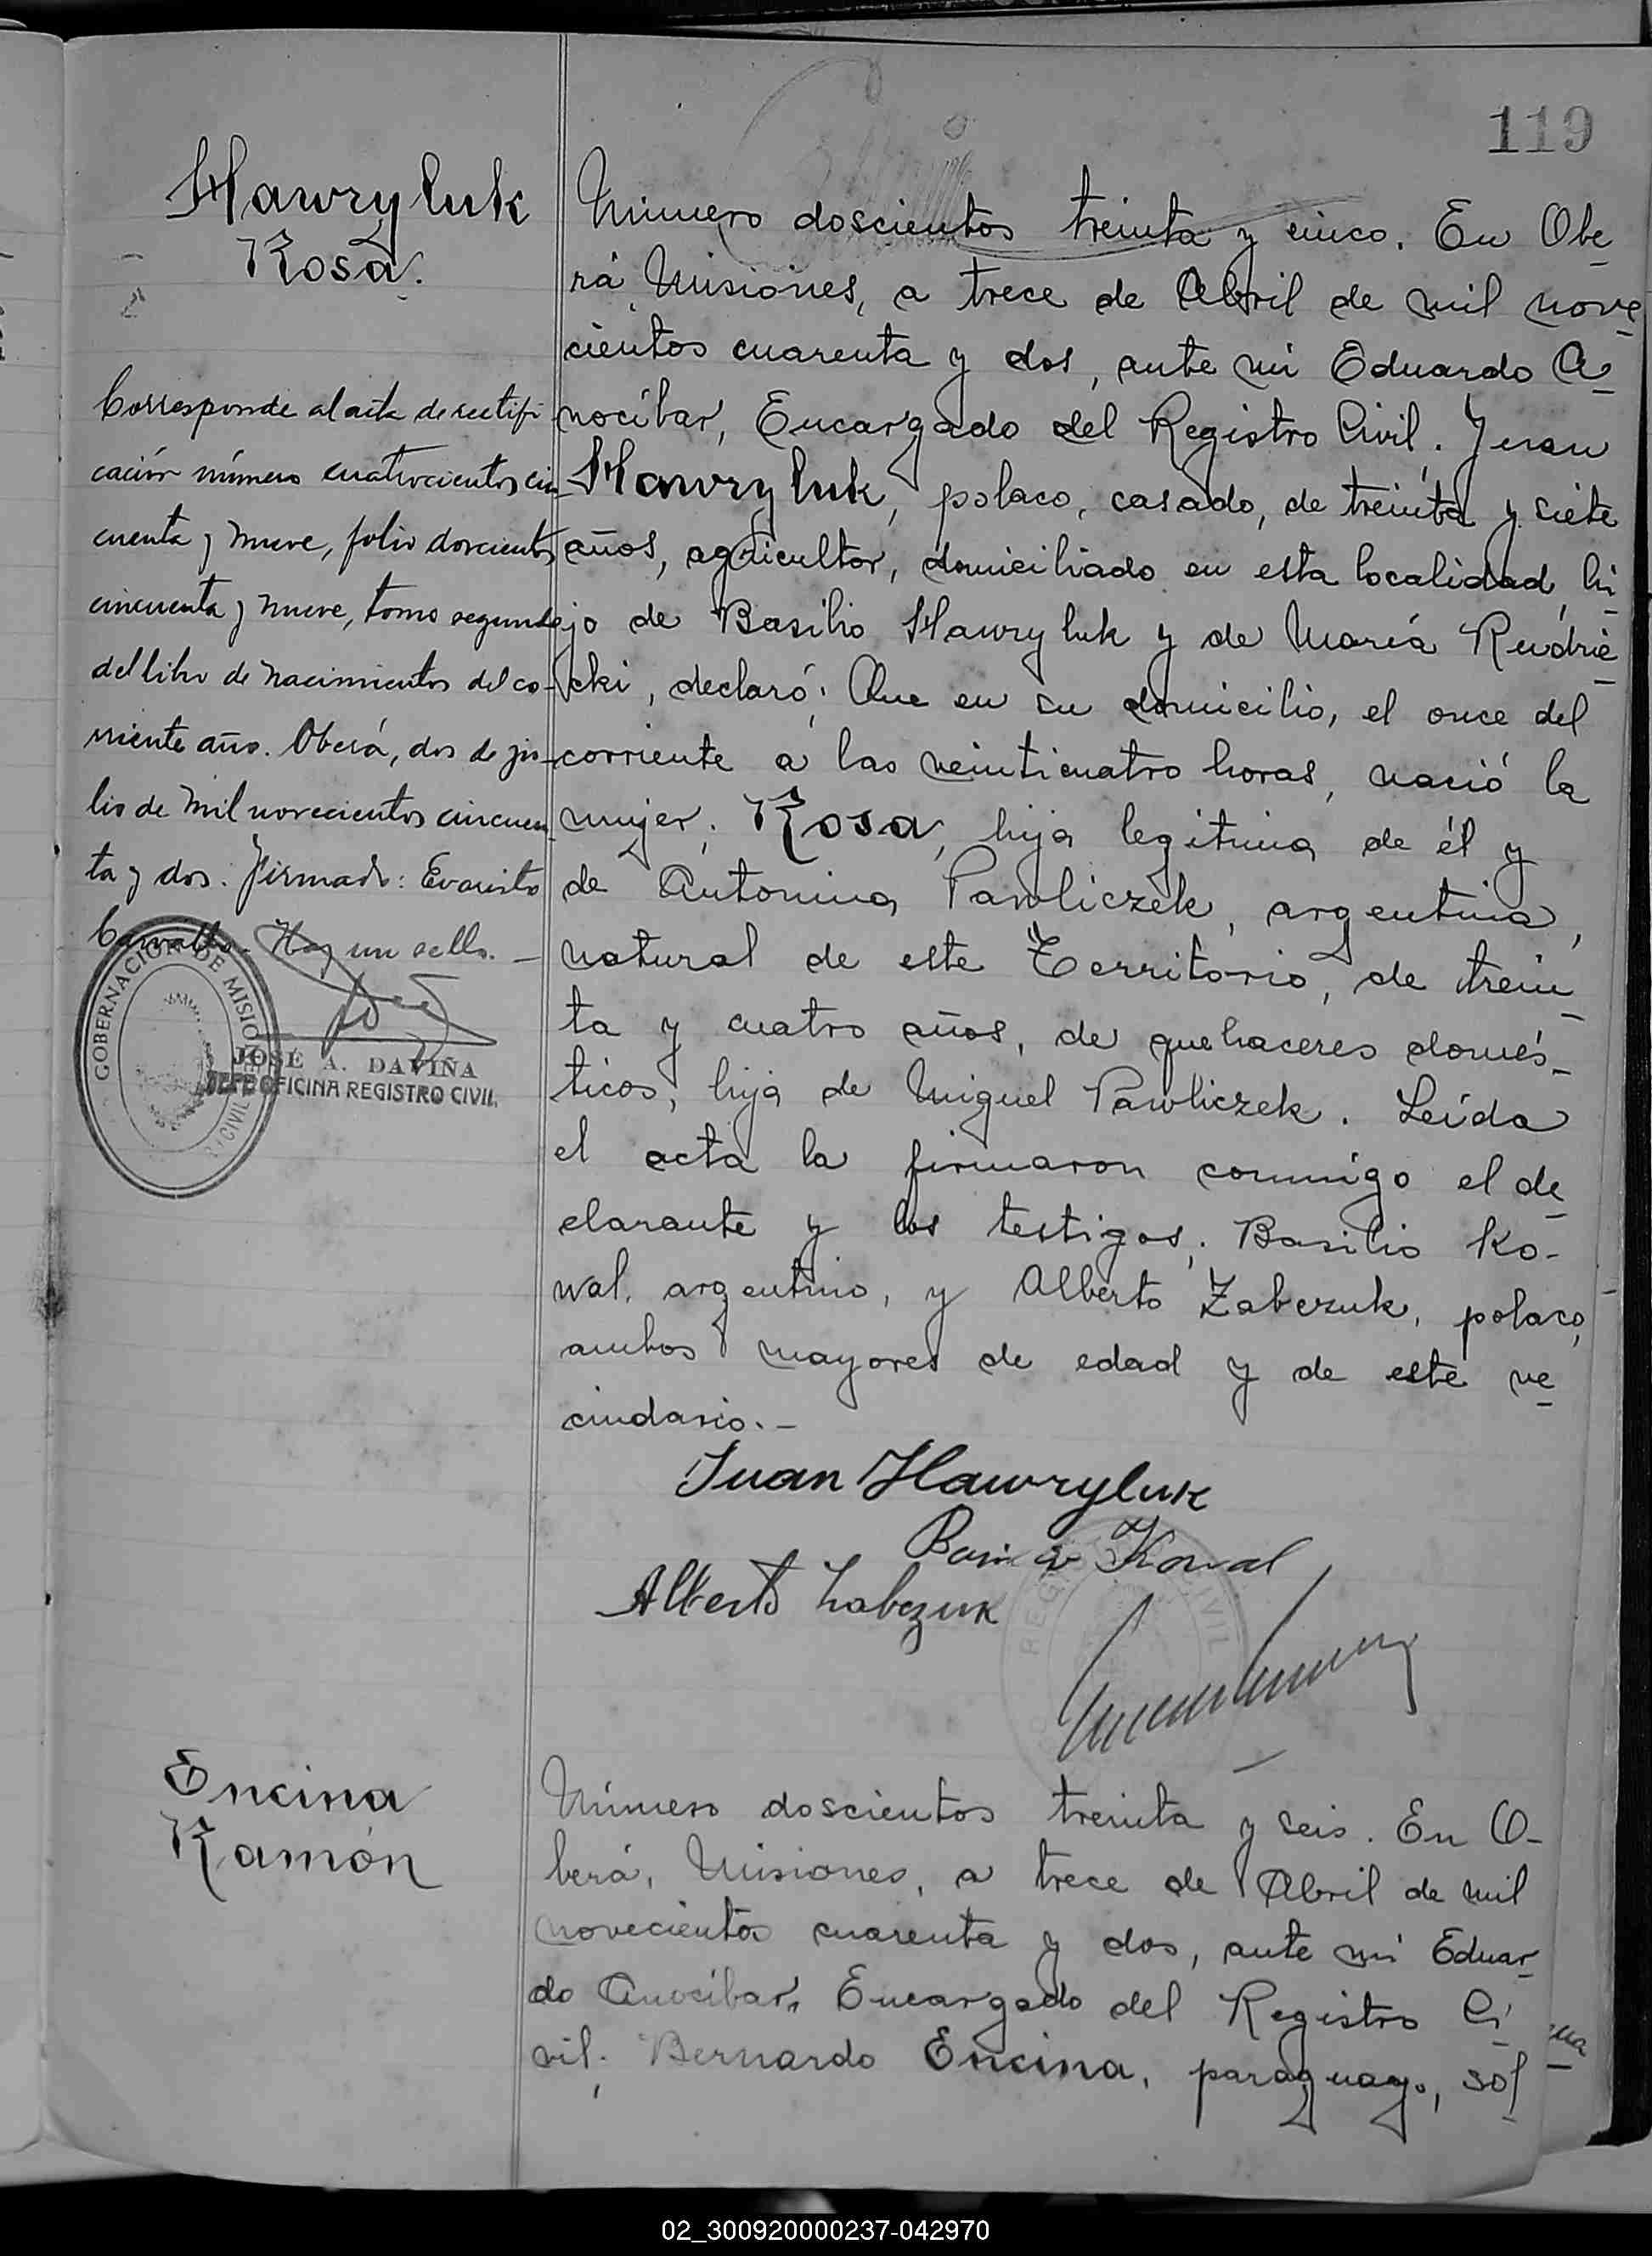 119
Hawryluk
Rosa.
Corresponde al acta de rectifi
cación número cuatrocientos cin
cuenta y nueve, folio doscientos
cincuenta y nueve, tomo segundo
del libro de nacimientos del co-
rriente año. Oberá, dos de ju-
lio de mil novecientos cincuen-
ta y dos. Firmado: Evaristo
Hay un sello. -
GOBERNACION DE MISIONES
JOSÉ A. DAVIÑA
JEFE OFICINA REGISTRO CIVIL
Número doscientos treinta y cinco. En Obe
rá, Misiones, a trece de Abril de mil nove
cientos cuarenta y dos, ante mí Eduardo A
nocíbar, Encargado del Registro Civil, Juan
Hawryluk, polaco, casado, de treinta y siete
años, agricultor, domiciliado en esta localidad, hi
jo de Basilio Hawryluk y de María
cki, declaró: Que en su domicilio, el once del
corriente a las veinticuatro horas, nació la
mujer: Rosa, hija legítima de él y
de Antonina Pawliczek, argentina,
natural de este Territorio, de trein
ta y cuatro años, de quehaceres domés-
ticos, hija de Miguel Pawliczek. Leída
el acta la firmaron conmigo el de
clarante y los testigos: Basilio Ko-
wal, argentino, y Alberto Zabczuk, polaco,
ambos mayores de edad y de este ve
cindario.-
Juan Hawryluk
Kowal
Alberto Zabczuk
REGISTRO CIVIL
Encina
Ramón
Número doscientos treinta y seis. En O-
berá, Misiones, a trece de Abril de mil
novecientos cuarenta y dos, ante mí Eduar
do Anocíbar, Encargado del Registro Ci
vil: Bernardo Encina, paraguayo, sol
02_300920000237-042970